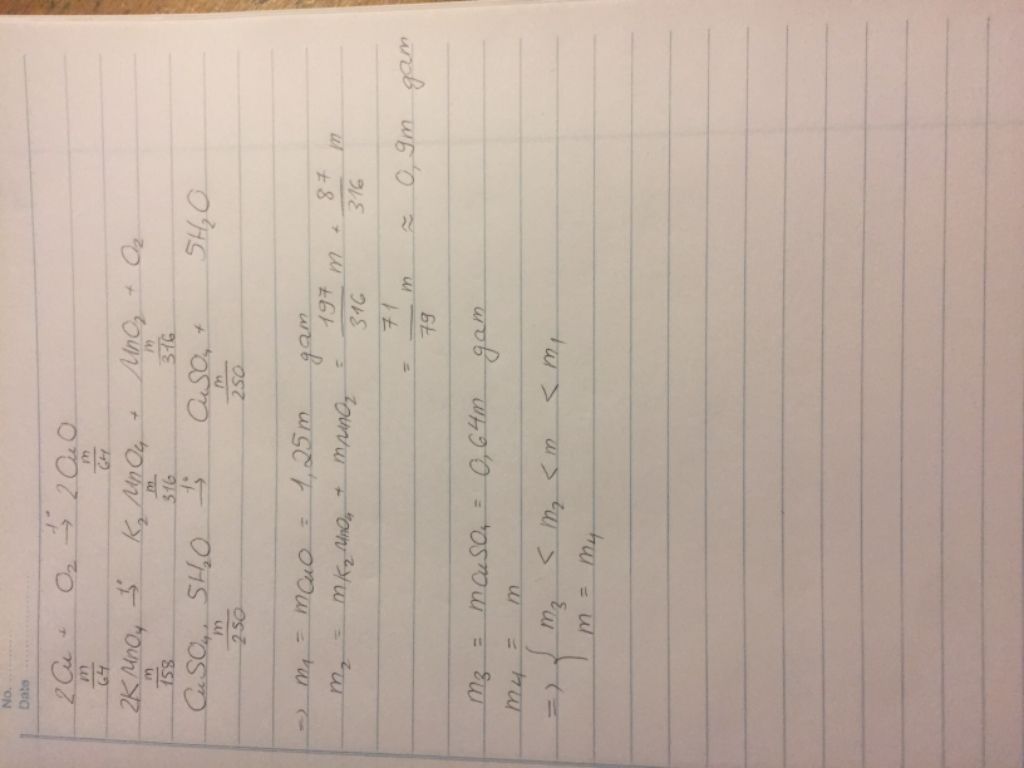 No. ............
Date ............
2Cu + O₂ →t° 2CuO
m/64 m/64
2KMnO₄ →t° K₂MnO₄ + MnO₂ + O₂
m/158 m/316 m/316
CuSO₄.5H₂O →t° CuSO₄ + 5H₂O
m/250 m/250
=> m₁ = mCuO = 1,25m gam
m₂ = mK₂MnO₄ + mMnO₂ = 197/316 m + 87/316 m
= 71/79 m ≈ 0,9m gam
m₃ = mCuSO₄ = 0,64m gam
m₄ = m
=> { m₃ < m₂ < m < m₁
m = m₄